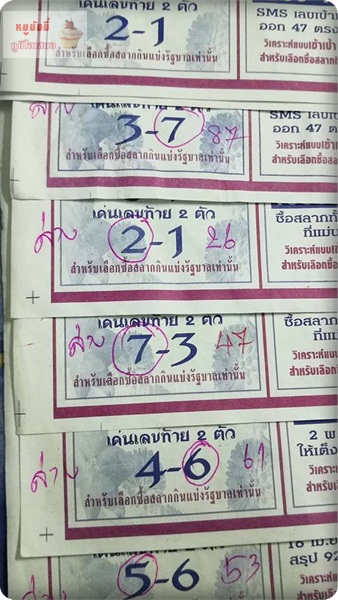 หมูบัดซิ่ี
เด่นเลขท้าย 2 ตัว
2-1
สำหรับเลือกซื้อสลากกินแบ่งรัฐบาลเท่านั้น
SMS เลขเข้า
ออก 47 ตรง
วิเคราะห์แบบเข้าเป้า
สำหรับเลือกซื้อสลาก
ล่าง
เด่นเลขท้าย 2 ตัว
3-7 87
สำหรับเลือกซื้อสลากกินแบ่งรัฐบาลเท่านั้น
SMS เลขเข้า
ออก 47 ต
วิเคราะห์แบบเข้าเป้า
สำหรับเลือกซื้อสล
ล่าง
เด่นเลขท้าย 2 ตัว
2-1 26
สำหรับเลือกซื้อสลากกินแบ่งรัฐบาลเท่านั้น
ซื้อสลากทั
ที่แม่น
วิเคราะห์แบบเ
สำหรับเลือกซื้
ล่าง
เด่นเลขท้าย 2 ตัว
7-3 47
สำหรับเลือกซื้อสลากกินแบ่งรัฐบาลเท่านั้น
ซื้อสลาก
ที่แม่
วิเคราะห์แบ
สำหรับเลือก
ล่าง
เด่นเลขท้าย 2 ตัว
4-6 61
สำหรับเลือกซื้อสลากกินแบ่งรัฐบาลเท่านั้น
2 พ
ให้เต็ง
วิเคราะ
สำหรับเ
ล่าง
5-6 53
16 เม.ย
สรุป 92